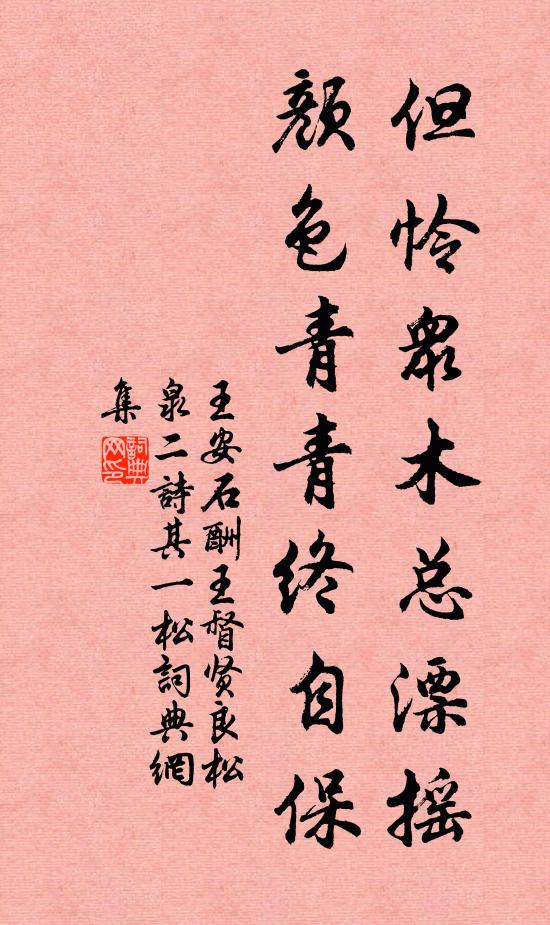 但怜眾木总漂摇
颜色青青终自保
王安石酬王督贤良松
泉二詩其一松詞典網
集
詞典網印